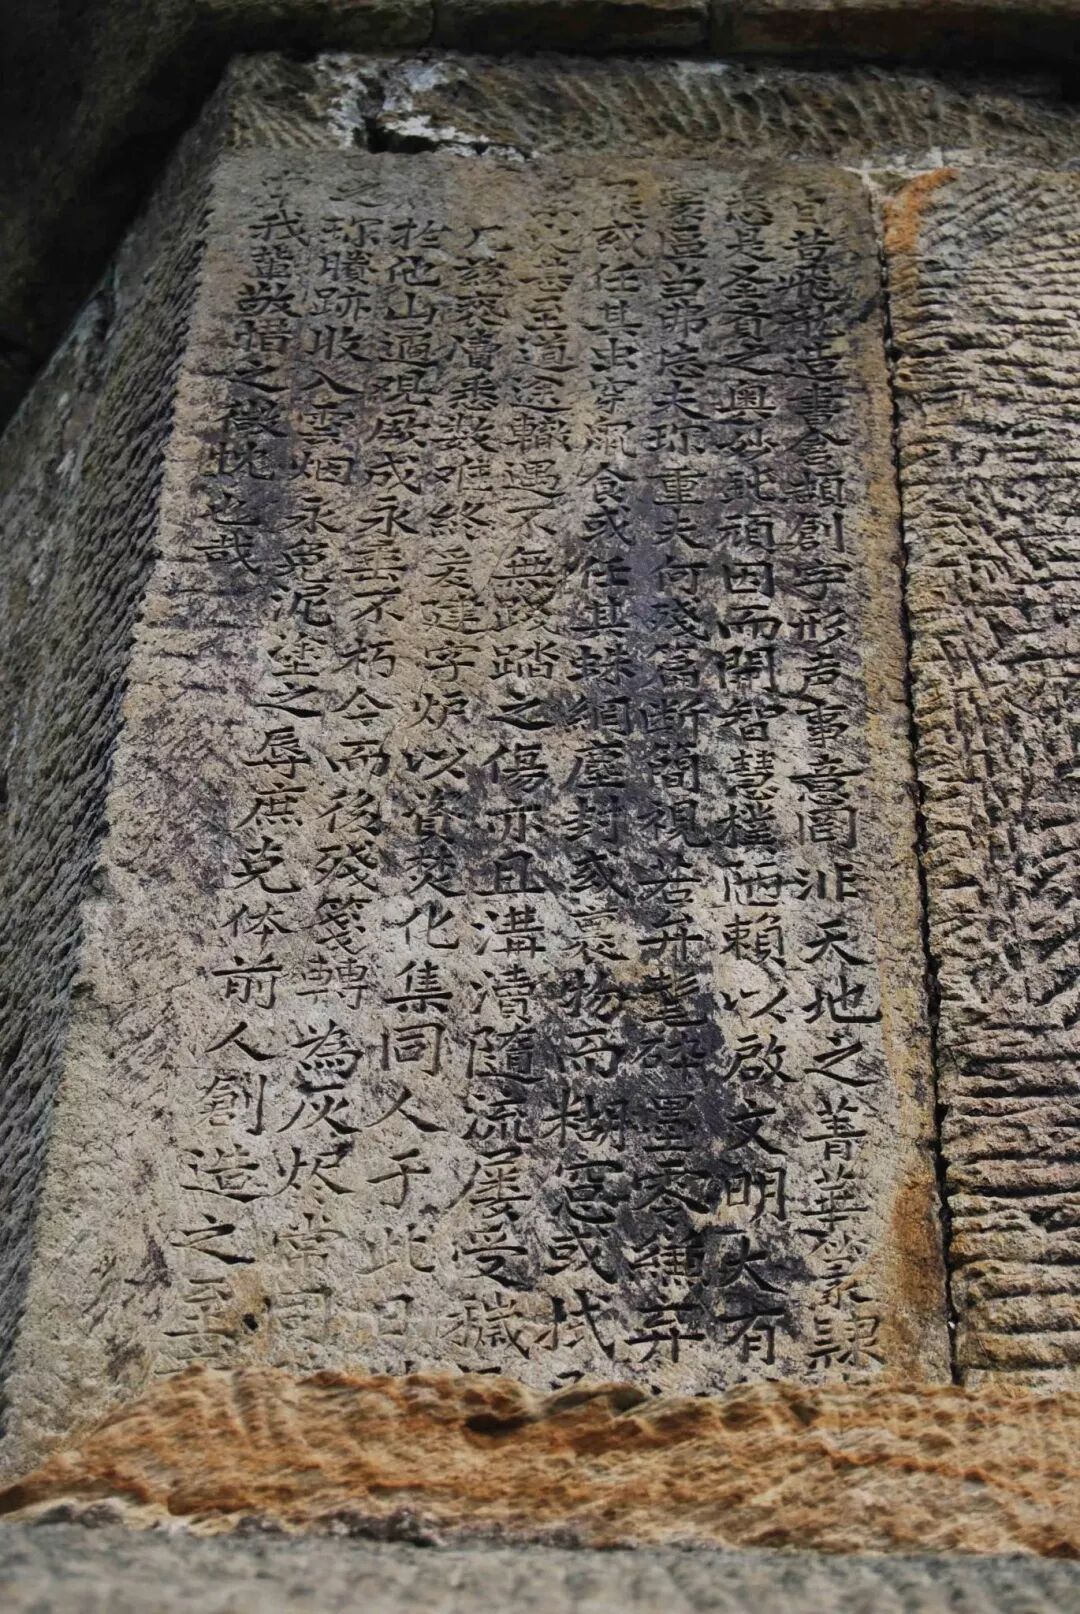 自昔飛龍造書倉頡創字形声事意啚非天地之菁華篆隸
悉是圣賢之奥妙玭頑因而開智慧樸陋賴以啟文明大有
寰區當弗忘夫珍重夫何殘篇断簡視若弁髦碎墨零縑弃
或任其虫穿鼠食或任其蛛網塵封或裹物而糊窓或拭
甚至道途轍遇不無踐踏之傷亦且溝瀆隨流屢受穢
凡兹褻瀆悉数难終爰建字炉以資焚化集同人于此日
於他山適觀厥成永垂不朽今而後殘箋轉為灰烬常同
之珎賸跡收入雲烟永免泥塗之辱庶克体前人創造之至
我輩敬惜之微忱也哉